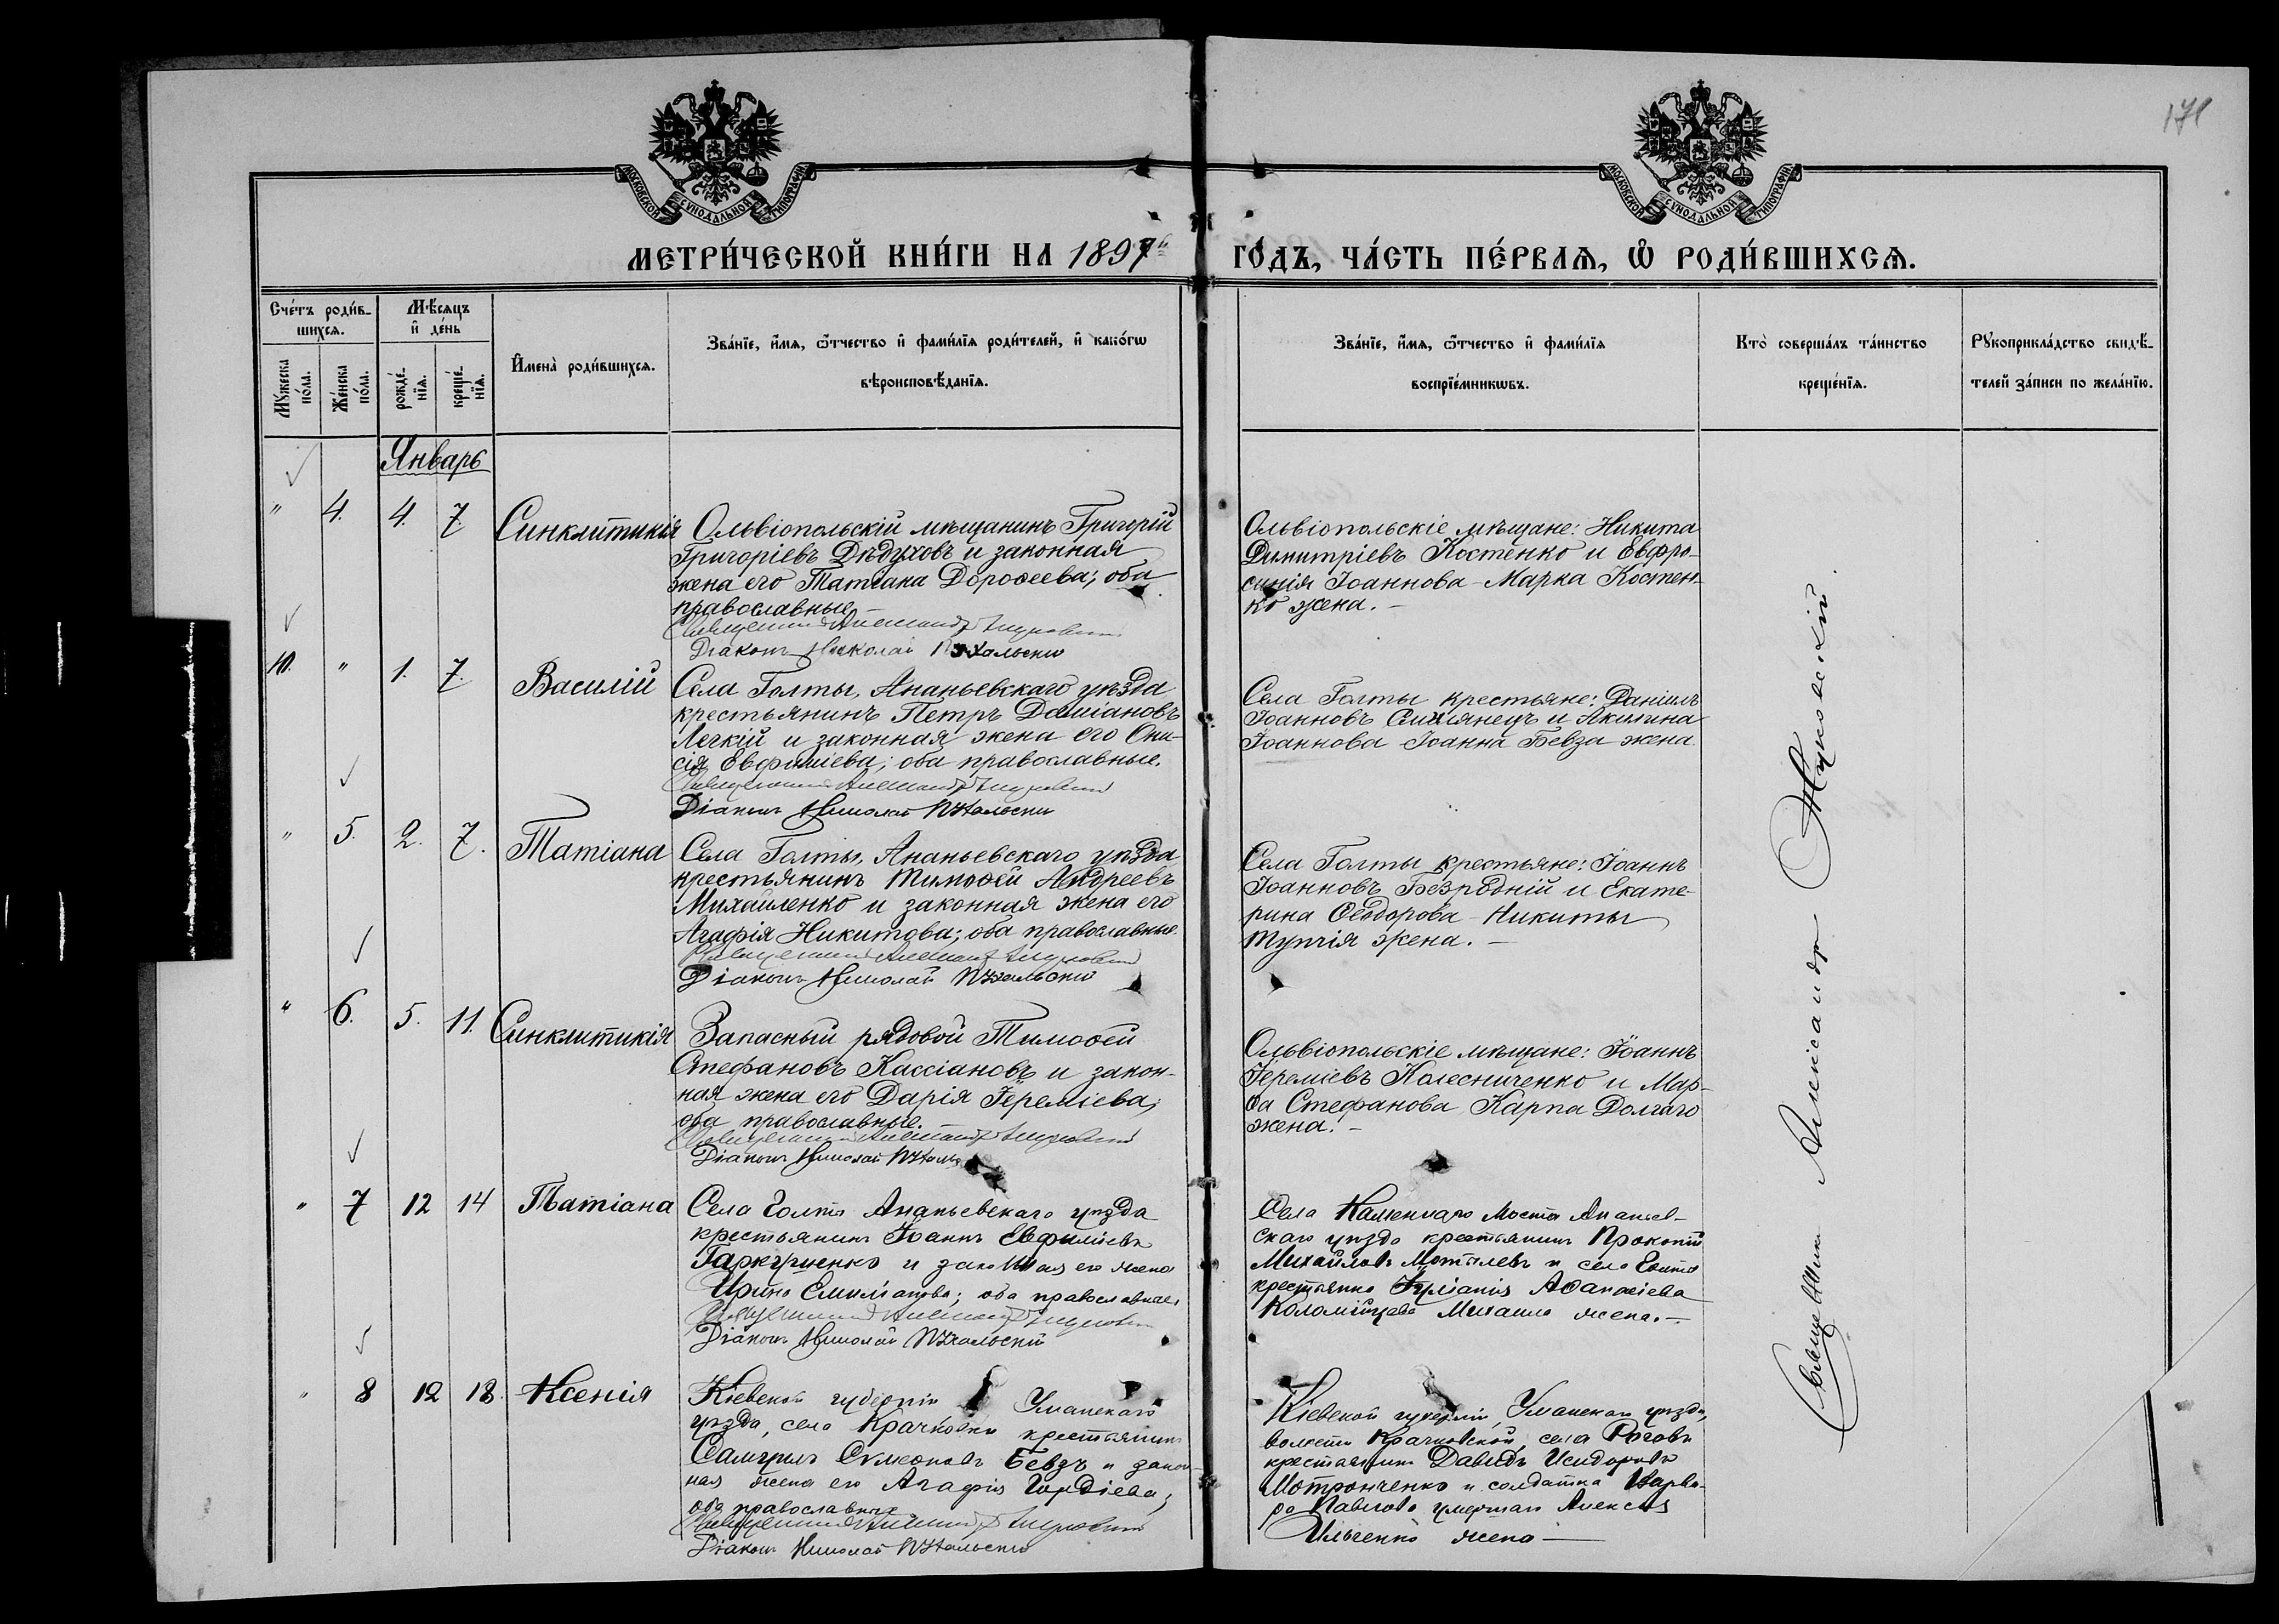 171
МОСКОВСКОЙ СѴНОДАЛЬНОЙ ТИПОГРАФІИ
МОСКОВСКОЙ СѴНОДАЛЬНОЙ ТИПОГРАФІИ
МЕТРИ́ЧЕСКОЙ КНИ́ГИ НА 1897й ГО́ДЪ, ЧА́СТЬ ПЕ́РВАѦ, Ѽ РОДИ́ВШИХСѦ.
Сче́тъ роди́в-
шихсѧ.
Мꙋ́жеска
по́ла.
Же́нска
по́ла.
Мѣ́сѧцъ
и҆ де́нь
рожде́-
нїѧ.
креще́-
нїѧ.
И҆мена̀ роди́вшихсѧ.
Зва́нїе, и҆́мѧ, ѻ҆́тчество и҆ фами́лїѧ роди́телей, и҆ како́гѡ
вѣроисповѣ́данїѧ.
Зва́нїе, и҆́мѧ, ѻ҆́тчество и҆ фами́лїѧ
воспрїе́мникѡвъ.
Кто̀ соверша́лъ та́инство
креще́нїѧ.
Рꙋкоприкла́дство свидѣ́-
телей за́писи по жела́нїю.
Январь
" 4. 4. 7. Синклитикія
Ольвіопольскій мѣщанинъ Григорій
Григоріевъ Дѣдуховъ и законная
жена его Татіана Дороѳеева; оба
православные. –
Священникъ Александръ
Діаконъ Николай
Ольвіопольскіе мѣщане: Никита
Димитріевъ Костенко и Евфро-
синія Іоаннова - Марка Костен-
ко жена. –
10. " 1. 7. Василій
Села Голты, Ананьевскаго уѣзда
крестьянинъ Петръ Даміановъ
Легкій и законная жена его Они-
сія Евфиміева; оба православные.
Священникъ Александръ
Діаконъ Николай
Села Голты крестьяне: Даніилъ
Іоанновъ и Акилина
Іоаннова - Іоанна Бевза жена.
" 5. 2. 7. Татіана
Села Голты, Ананьевскаго уѣзда
крестьянинъ Тимоѳей Андреевъ
Михайленко и законная жена его
Агафія Никитова; оба православные.
Священникъ Александръ
Діаконъ Николай
Села Голты крестьяне: Іоаннъ
Іоанновъ Безродній и Екате-
рина Ѳеодорова - Никиты
жена. –
" 6. 5. 11. Синклитикія
Запасный рядовой Тимоѳей
Стефановъ Кассіановъ и закон-
ная жена его Дарія Іереміева;
оба православные.
Священникъ Александръ
Діаконъ Николай
Ольвіопольскіе мѣщане: Іоаннъ
Іереміевъ Колесниченко и Мар-
ѳа Стефанова Карпа Долгаго
жена. –
" 7 12 14 Татіана
Села Голты Ананьевскаго уѣзда
крестьянинъ Іоаннъ Евфиміевъ
Гаркушенко и законная его жена
Ирина Емиліанова; оба православные
Священникъ Александръ
Діаконъ Николай
Села Каменнаго Моста Ананьев-
скаго уѣзда крестьянинъ Прокопій
Михайловъ Мотылевъ и села Голты
крестьянка Іуліанія Аѳанасіева
Коломійцева Михаила жена. –
" 8 12 18. Ксенія
Кіевской губерніи Уманскаго
уѣзда, села Крачковки крестьянинъ
Самуилъ Симеоновъ Бевзъ и закон-
ная жена его Агафія Гордіева;
оба православные.
Священникъ Александръ
Діаконъ Николай
Кіевской губерніи, Уманскаго уѣзда,
волости Крачковской, села Роговъ
крестьянинъ Давидъ Исидоровъ
Мотронченко и солдатка Варва-
ра Павлова умершаго Алексѣя
Ильченко жена –
Священникъ Александръ